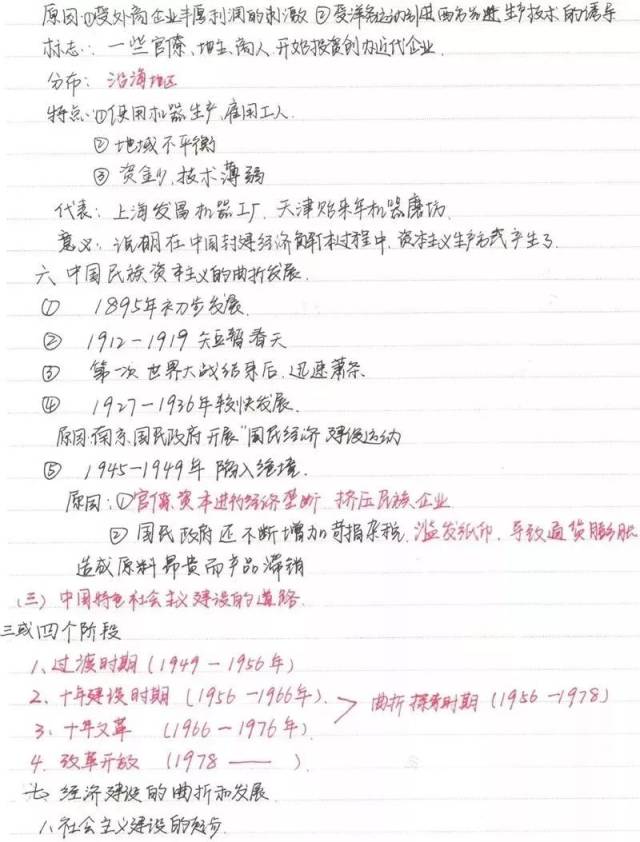 原因:①受外商企业丰厚利润的刺激 ②受洋务运动引进西方先进生产技术的诱导
标志:一些官僚、地主、商人开始投资创办近代企业.
分布:沿海地区
特点:①使用机器生产,雇用工人.
②地域不平衡
③资金少,技术薄弱
代表:上海发昌机器厂,天津贻来牟机器磨坊.
意义:说明在中国封建经济解体过程中,资本主义生产方式产生了.
六、中国民族资本主义的曲折发展.
① 1895年初步发展.
② 1912-1919 短暂春天
③ 第一次世界大战结束后,迅速萧条
④ 1927-1936年较快发展.
原因:南京国民政府开展"国民经济建设运动
⑤ 1945-1949年陷入绝境.
原因:①官僚资本进行经济垄断 挤压民族企业
②国民政府还不断增加苛捐杂税,滥发纸币,导致通货膨胀
造成原料昂贵而产品滞销
(三)中国特色社会主义建设的道路.
三或四个阶段
1、过渡时期(1949-1956年)
2、十年建设时期(1956-1966年). > 曲折探索时期(1956-1978)
3、十年文革 (1966-1976年).
4、改革开放 (1978—— ).
七、经济建设的曲折和发展.
1、社会主义建设的起步.